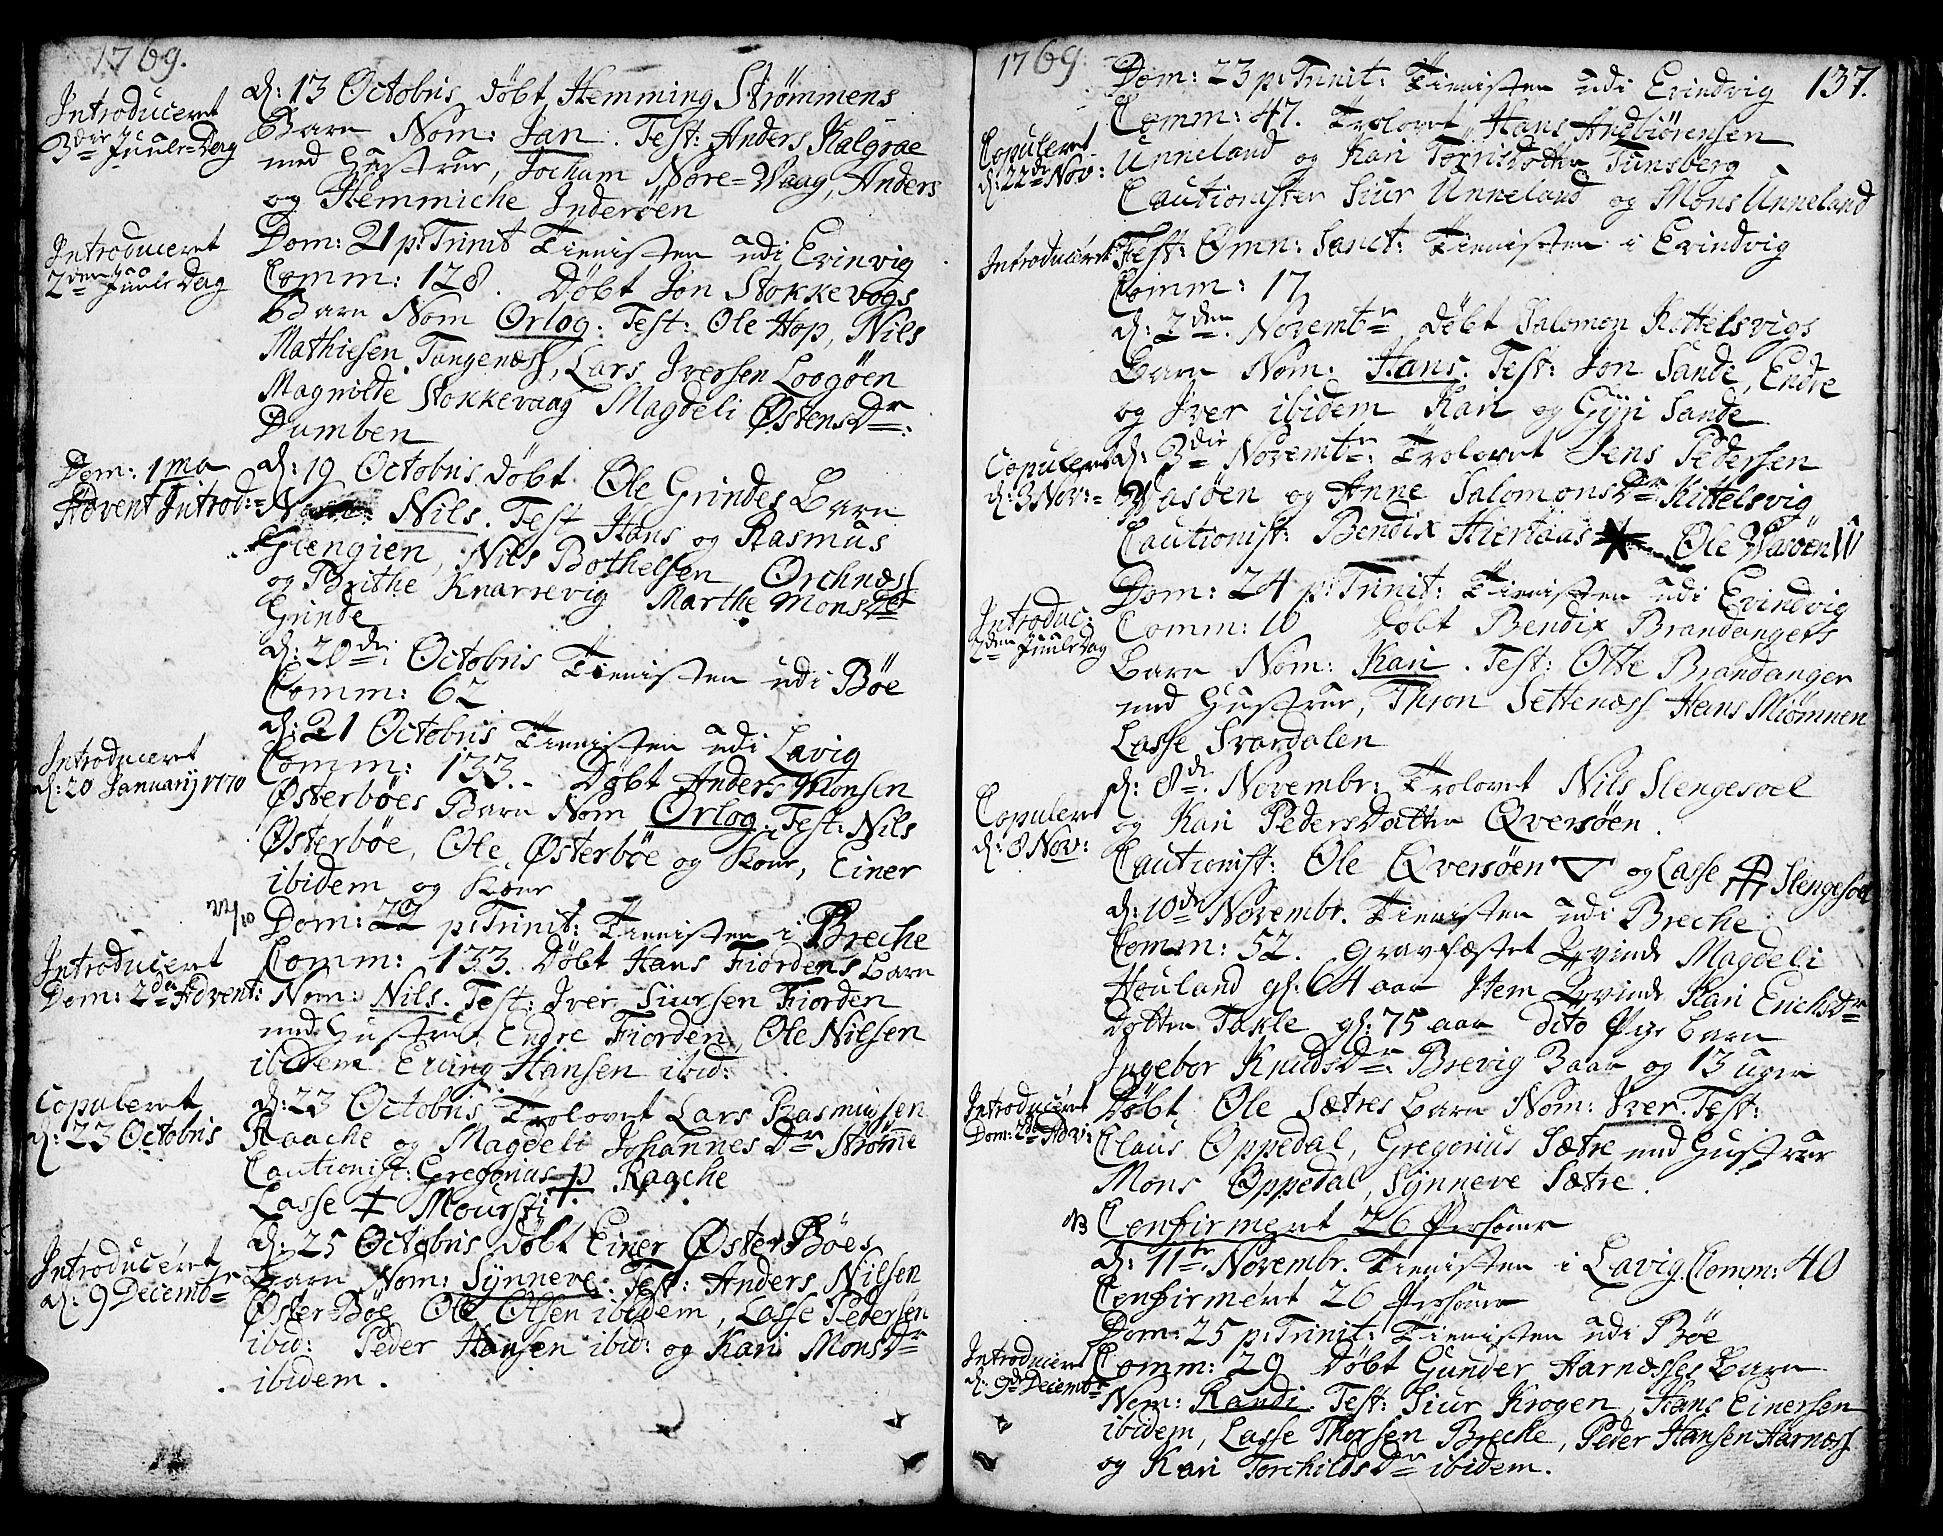 1769.
Introduceret
3die Juule-Dag
d: 13 Octobris døbt Hemming Strømmens
Barn Nom: Jan. Test: Anders Kalgrae
med Hustrue, Jocham Nore=Vaag, Anders
og Hemmiche Inderøen
Introduceret
2den Juule Dag
Dom: 21 p: Trinit Tienisten udi Evinvig
Comm: 128. Døbt Jon Stokkevogs
Barn Nom Orlog. Test: Ole Hop, Nils
Mathiesen Tangenæss, Lars Iversen Loogøen
Magnilde Stokkevaag Magdeli ØstensDr:
Dumben
Dom: 1ma
Advent Introd:
d: 19 Octobris døbt Ole Grindes Barn
Nom: Nils. Test Hans og Rasmus
Glengien, Nils Bothelsen Orchnæss
og Brithe Knarrevig Marthe MonsDr
Grinde
d: 20de Octobris Tienisten udi Bøe
Comm: 62
Introduceret
d: 20 Januarij 1770
d: 21 Octobris Tienisten udi Lavig
Comm: 133. Døbt Anders Monsen
Østerbøes Barn Nom Orlog. Test: Nils
Østerbøe, Ole Østerbøe og Kone, Einer
ibidem og Kone
22/10
Dom: 22 p: Trinit: Tienisten i Breche
Introduceret
Dom: 2da Advent:
Comm: 133. Døbt Hans Fiordens Barn
Nom: Nils. Test: Iver Siursen Fiorden
med Hustrue, Endre Fiorden, Ole Nilsen
ibidem Eving Hansen ibid:
Copuleret
d: 23 Octobris
d: 23 Octobris Trolovet Lars Rasmussen
Raache og Magdeli JohannesDr Strømme
Cautionist: Gregorius Raache
Lasse Moursti
Introduceret
d: 9 Decembr
d: 25 Octobris døbt Einer ØsterBøes
Barn Nom: Synneve. Test: Anders Nilsen
ØsterBøe Ole Olsen ibidem, Lasse Pedersen
ibid: Peder Hansen ibid: og Kari MonsDr
ibidem.
1769.
137.
Dom: 23 p: Trinit: Tienisten udi Evindvig
Comm: 47. Trolovet Hans Andbiørensen
Copuleret
d: 22de Nov:
Unneland og Kari Torrisdotter Tunsberg
Cautionister Siur Unneland og Mons Unneland
Introduceret
Fest: Omn: Sanct: Tienisten i Evindvig
Comm: 17
d: 2den Novembr døbt Salomon Kittelsvigs
Barn Nom: Hans. Test: Jon Sande, Endre
og Iver ibidem Kari og Gyri Sande
Copuleret
d: 3 Nov:
d: 3die Novembr: Trolovet Jens Pedersen
Wasøen og Anne SalomonsDr Kittelsvig
Cautionist: Bendix Hiertaas Ole Waøen
Dom: 24 p: Trinit: Tienisten udi Evindvig
Introduc:
2den Juule Dag
Comm: 10 Døbt Bendix Brandangers
Barn Nom: Kari. Test: Otte Brandanger
med Hustrue, Thron Settenæss Hans Miømnen
Lasse Svardalen
Copuleret
d: 8 Nov:
d: 8de Novembr: Trolovet Nils Slengesoel
og Kari PedersDatter Qversøen.
Cautionist: Ole Qversøen og Lasse Slengesoel
d: 10de Novembr. Tienisten udi Breche
Comm: 52. Gravfæstet Qvinde Magdeli
Høuland gl: 64 aar Item Qvinde Kari ErichsDr
dotter Takle gl: 75 aar dito Pige Barn
Ingebor KnudsDr: Brevig 3 aar og 13 uger
Introduceret
Dom: 2da Adv:
Døbt Ole Sætres Barn Nom: Iver. Test:
Claus Oppedal, Gregorius Sætre med Hustrue
Mons Oppedal, Synneve Sætre.
NB Confirmeret 26 Persone
d: 11te Novembr. Tienisten i Lavig. Comm: 40
Confirmeret 26 Persone
Dom: 25 p: Trinit: Tienisten udi Bøe
Introduceret
d: 9de Decembr
Comm: 29 Døbt Gunder Harnæsses Barn
Nom: Randi. Test: Siur Krogen, Hans Einersen
ibidem, Lasse Thorsen Breche, Peder Hansen Harnæss
og Kari TorchildsDr ibidem.